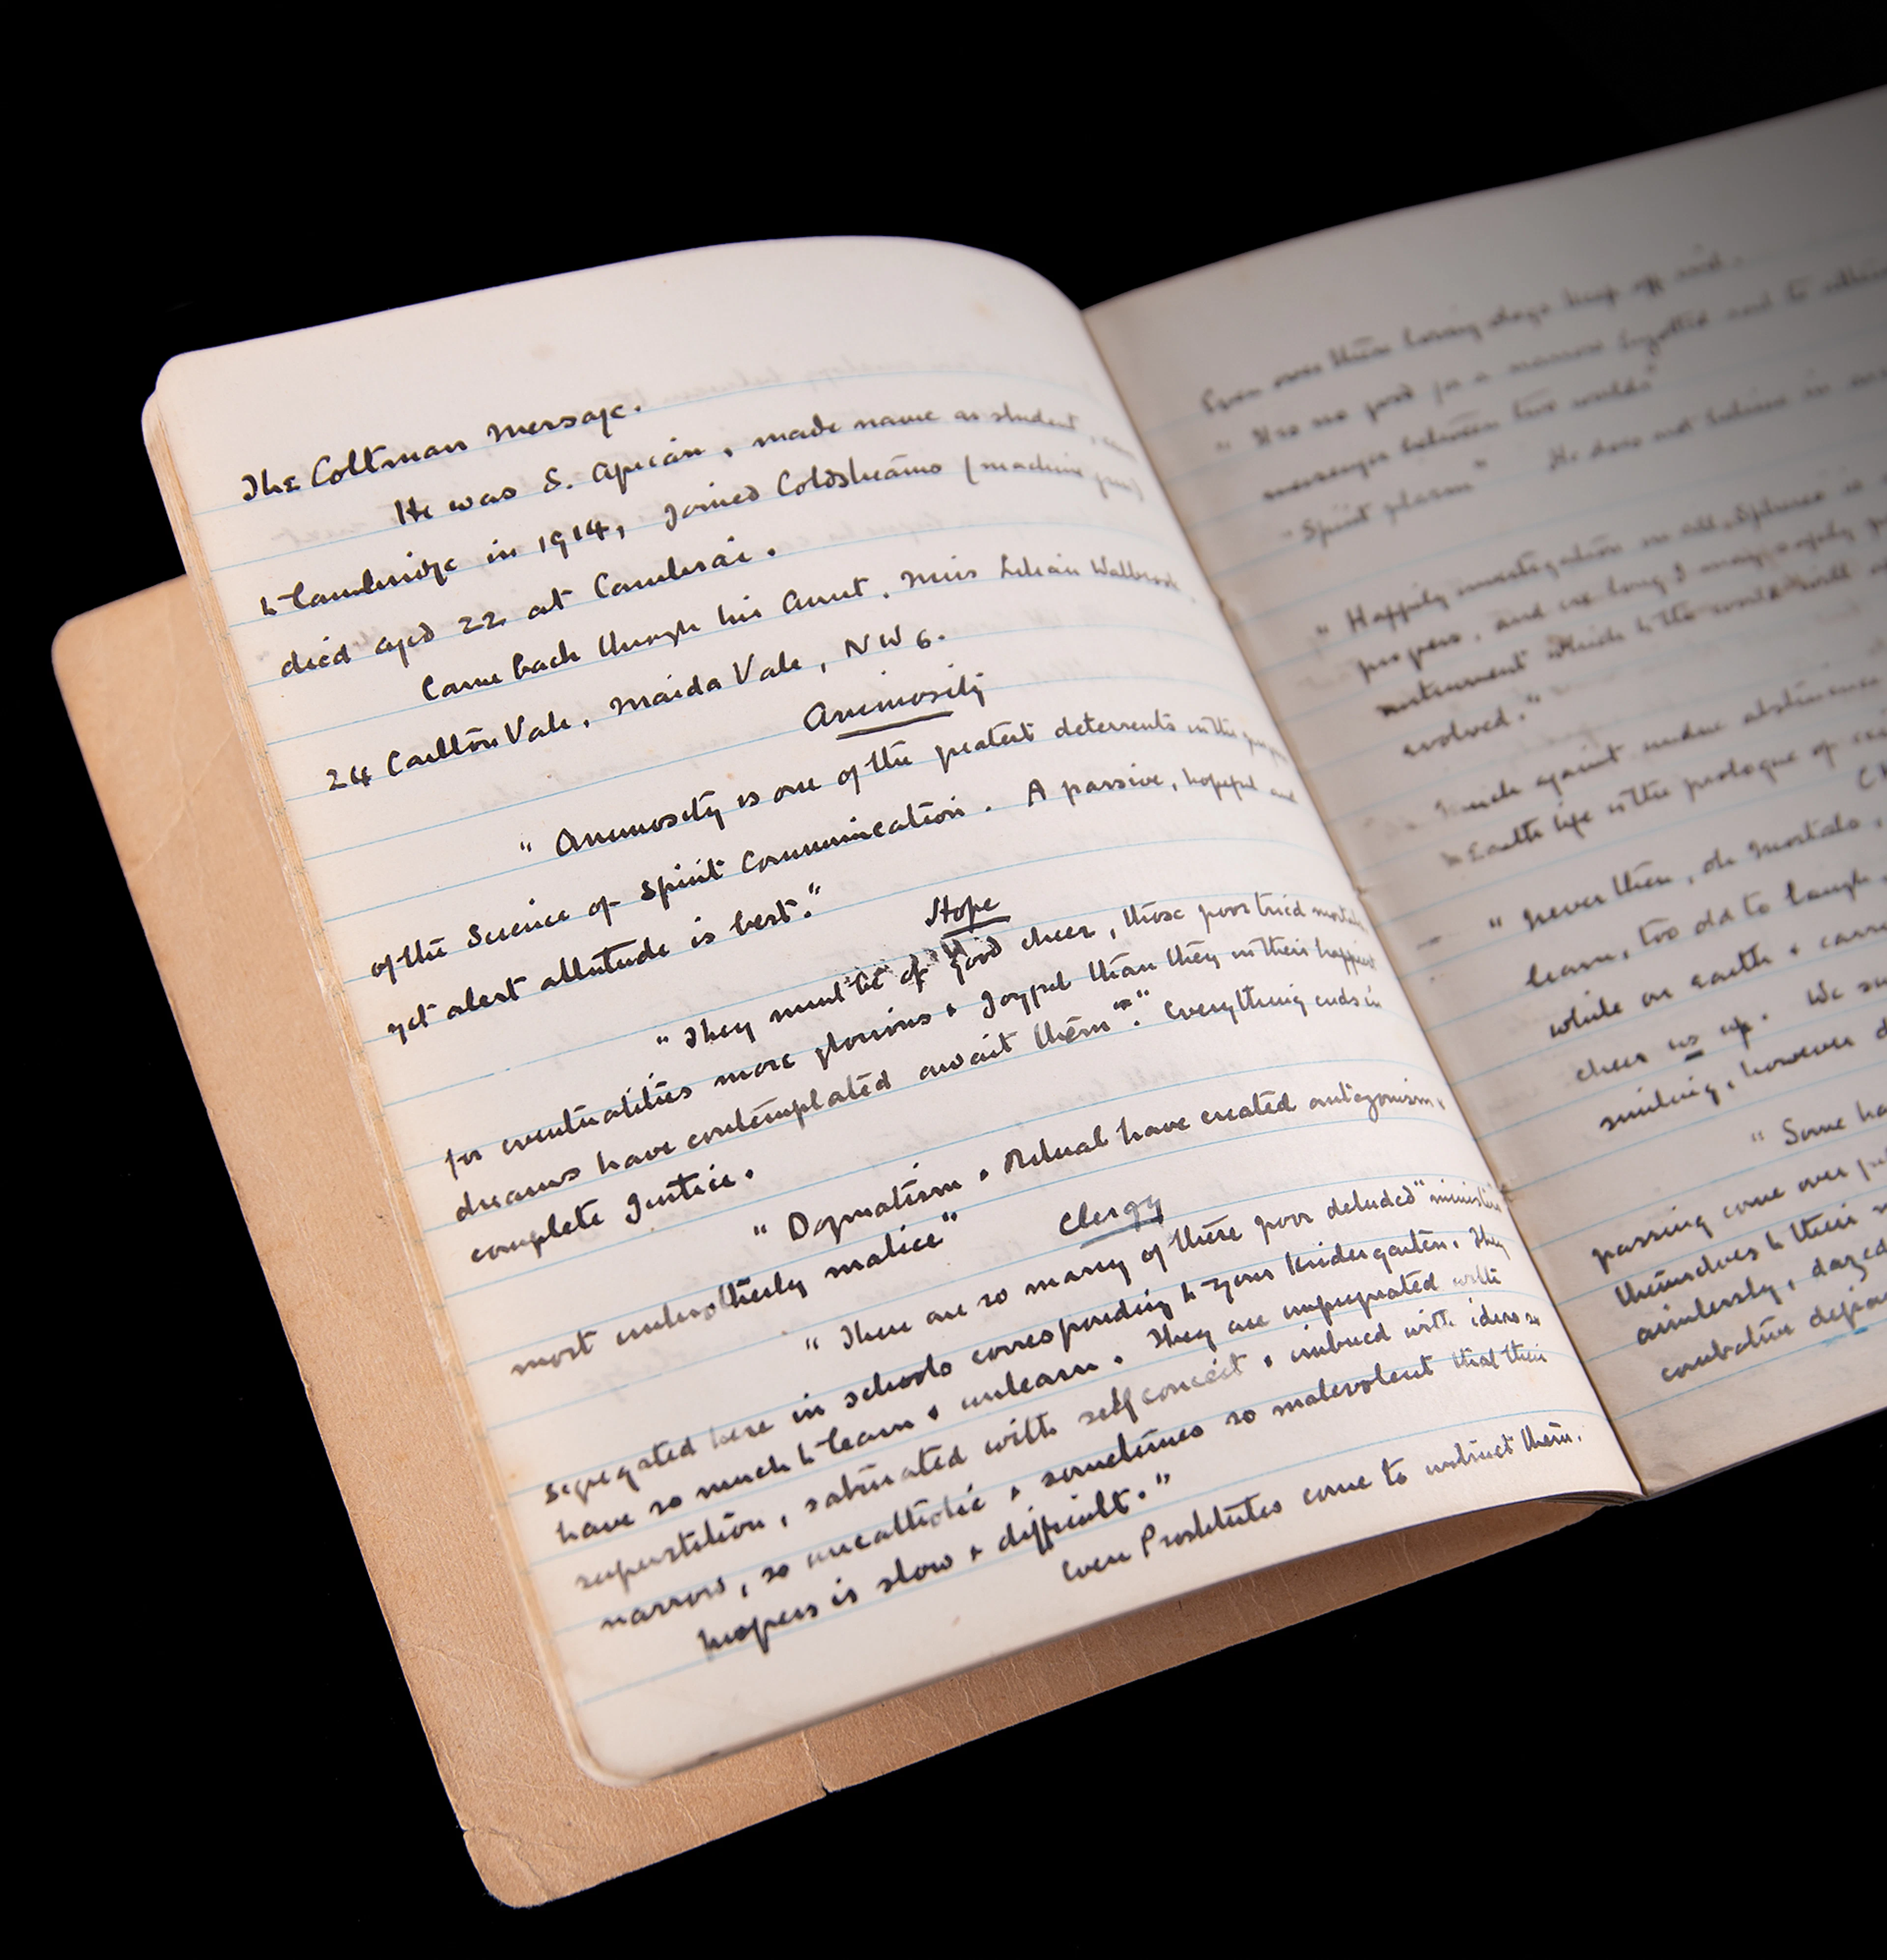 The Coltman Message.
He was S. African, made name as student, came
to Cambridge in 1914, Joined Coldstreams (machine gun)
died aged 22 at Cambrai.
Came back through his Aunt. Miss Lilian Walbrook.
24 Carlton Vale, Maida Vale, NW6.
Animosity
" Animosity is one of the greatest deterrents in the progress
of the Science of Spirit Communication. A passive, hopeful and
yet alert attitude is best."
Hope
" They must be of good cheer, those poor tried mortals
for eventualities more glorious & Joyful than they in their happiest
dreams have contemplated await them". Everything ends in
complete Justice.
" Dogmatism & Ritual have created antagonism &
most unbrotherly malice"
Clergy
" There are so many of these poor deluded "ministers"
segregated here in schools corresponding to your Kindergarten. They
have so much to learn & unlearn. They are impregnated with
superstition, saturated with self conceit & imbued with ideas so
narrow, so uncatholic & sometimes so malevolent that their
progress is slow & difficult."
Even Prostitutes come to instruct them.
Even over there loving dogs keep off and.
" It is no good for a narrow bigotted and to
messenger between two worlds"
"Spirit plasm" He does not believe in
" Happily investigation in all Spheres is
progress, and ere long I may safely
instrument which to the world will
evolved."
Much against undue abstinence
Earth life is the prologue of
" Never then, oh Mortals,
learn, too old to laugh,
while on earth &
cheer us up. We
smiling, however
" Some
passing come over
themselves to their
aimlessly, dazed
combative